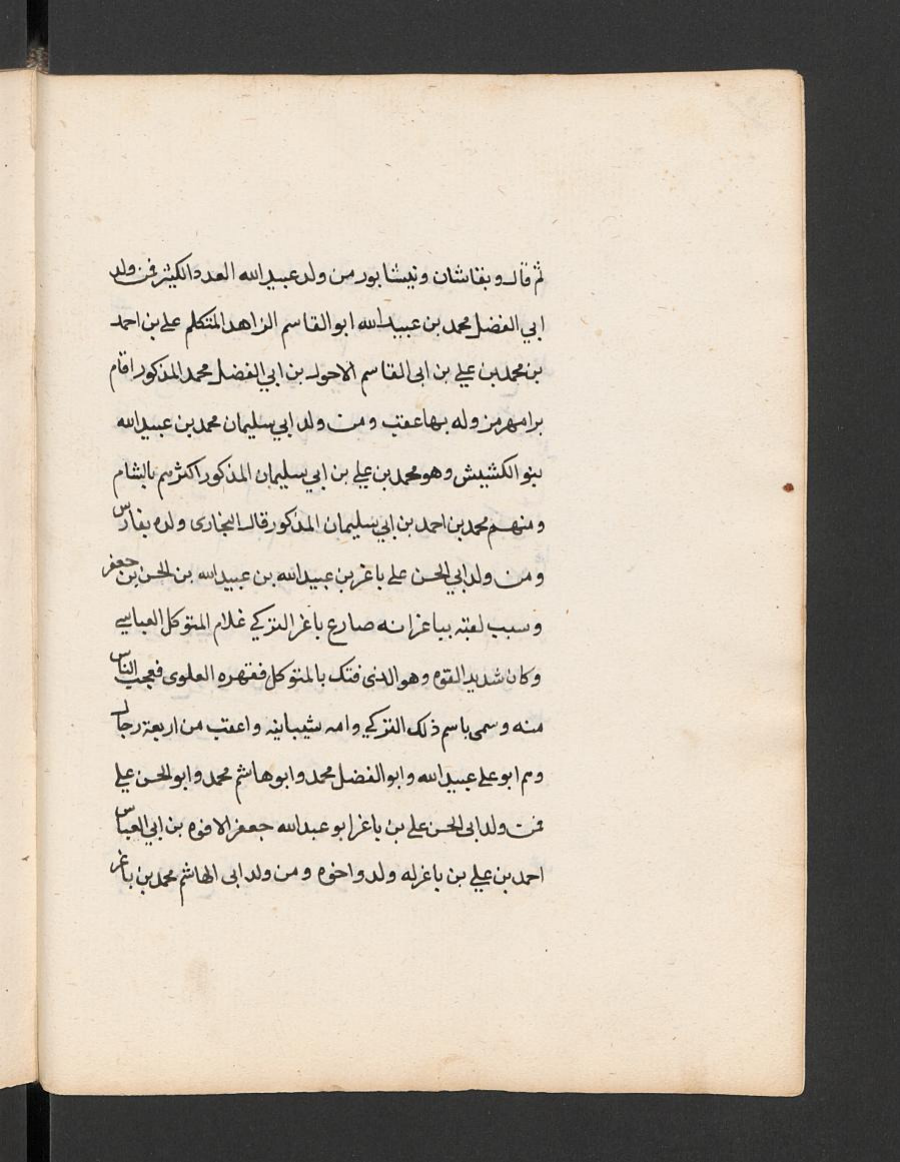 ثم قال وبقاشان ونيشابور من ولد عبيد الله العدد الكثير فمن ولد
ابي الفضل محمد بن عبيد الله ابو القاسم الزاهد المتكلم علي بن احمد
بن محمد بن علي بن ابي القاسم الاحول بن ابي الفضل محمد المذكور اقام
برامهرمز وله بها عقب ومن ولد ابي سليمان محمد بن عبيد الله
بنو الكشيش وهو محمد بن علي بن ابي سليمان المذكور اكثرهم بالشام
ومنهم محمد بن احمد بن ابي سليمان المذكور قال البخاري ولده بفارس
ومن ولد ابي الحسن علي باغر بن عبيد الله بن عبيد الله بن الحسن بن جعفر
وسبب لقبه بباغر انه صارع باغر التركي غلام المتوكل العباسي
وكان شديد القوه وهو الذى فتك بالمتوكل فقهره العلوى فعجب الناس
منه وسمى باسم ذلك التركي وامه شيبانيه واعقب من اربعة رجال
وهم ابو علي عبيد الله وابو الفضل محمد وابو هاشم محمد وابو الحسن علي
فمن ولد ابى الحسن علي بن باغر ابو عبد الله جعفر الافوه بن ابي العباس
احمد بن علي بن باغر له ولد واخوه ومن ولد ابى الهاشم محمد بن باغر